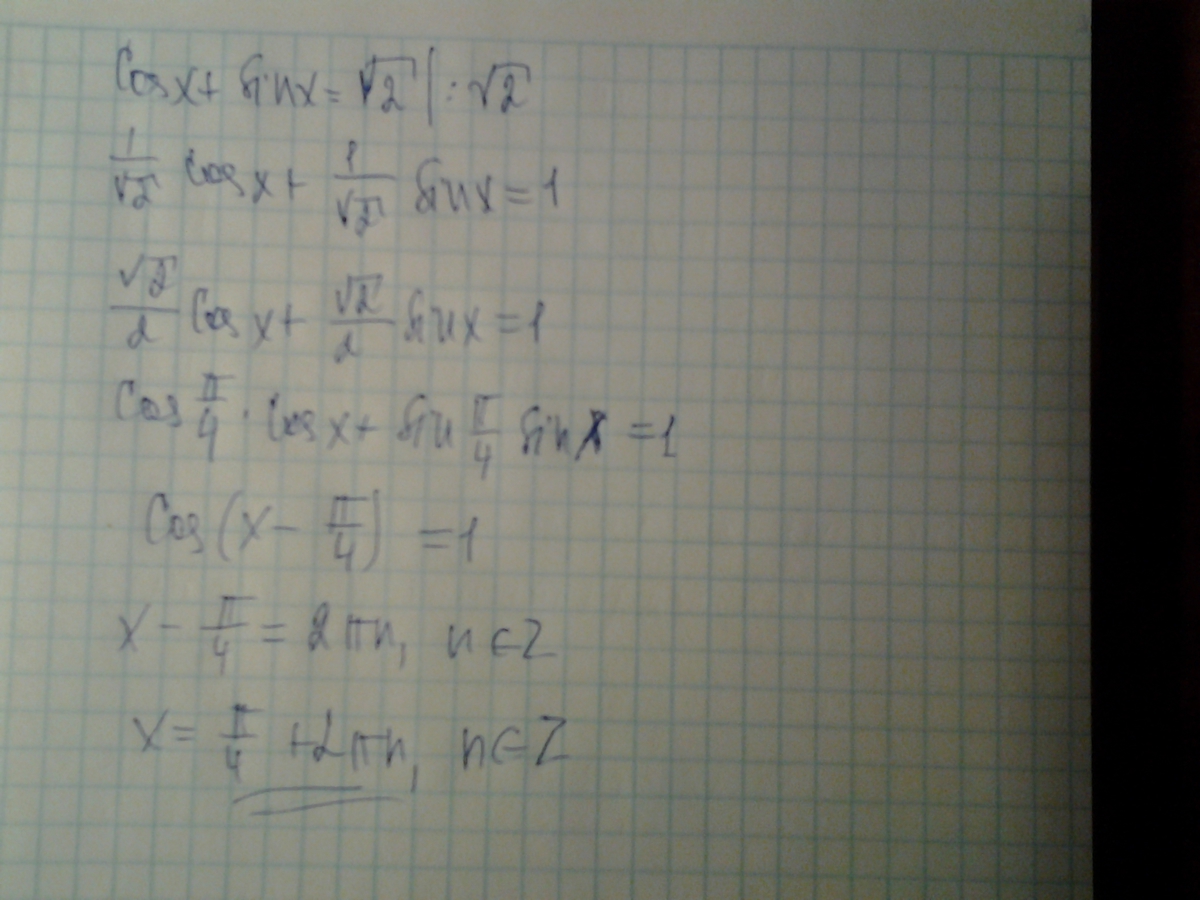 Cos x + sin x = √2 | : √2
1/√2 Cos x + 1/√2 sin x = 1
√2/2 Cos x + √2/2 sin x = 1
Cos π/4 · Cos x + sin π/4 sin x = 1
Cos (x - π/4) = 1
x - π/4 = 2πn, n ∈ Z
x = π/4 + 2πn, n ∈ Z